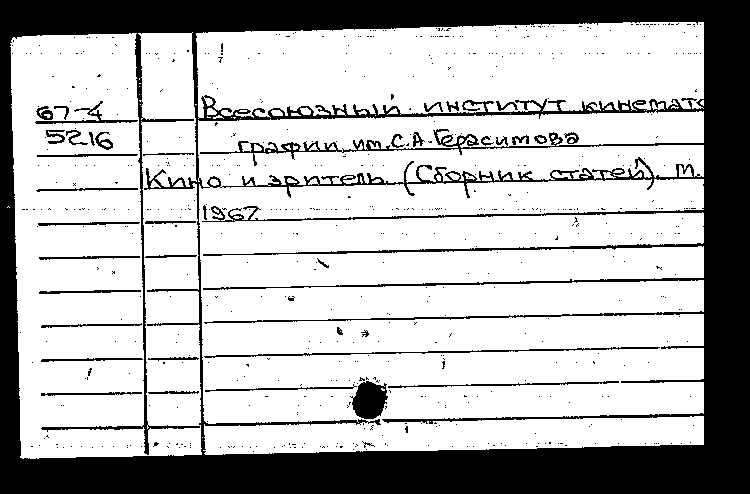 67-4 Всесоюзный институт кинемато
5216 графии им. С.А. Герасимова
Кино и зритель (Сборник статей). М.
1967.